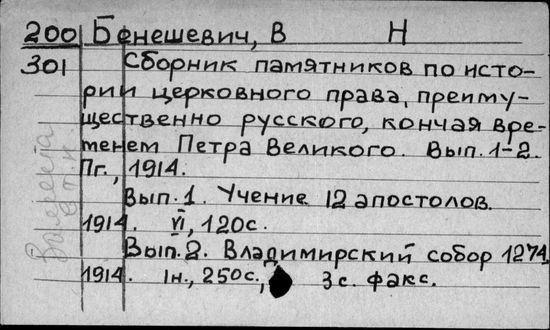 200 Бенешевич, В Н
301 Сборник памятников по исто-
рии церковного права, преиму-
щественно русского, кончая вре-
менем Петра Великого. Вып. 1-2.
Пг., 1914.
Вып. 1. Учение 12 апостолов.
1914. VI, 120с.
Вып. 2. Владимирский собор 1274.
1914. 1н., 250с., 3с. факс.